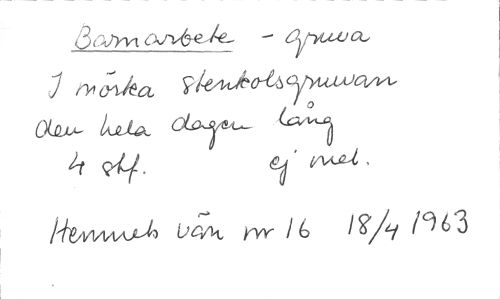 Barnarbete - gruva
I mörka stenkolsgruvan
den hela dagen lång
4 stf. ej mel.
Hemmets vän nr 16 18/4 1963